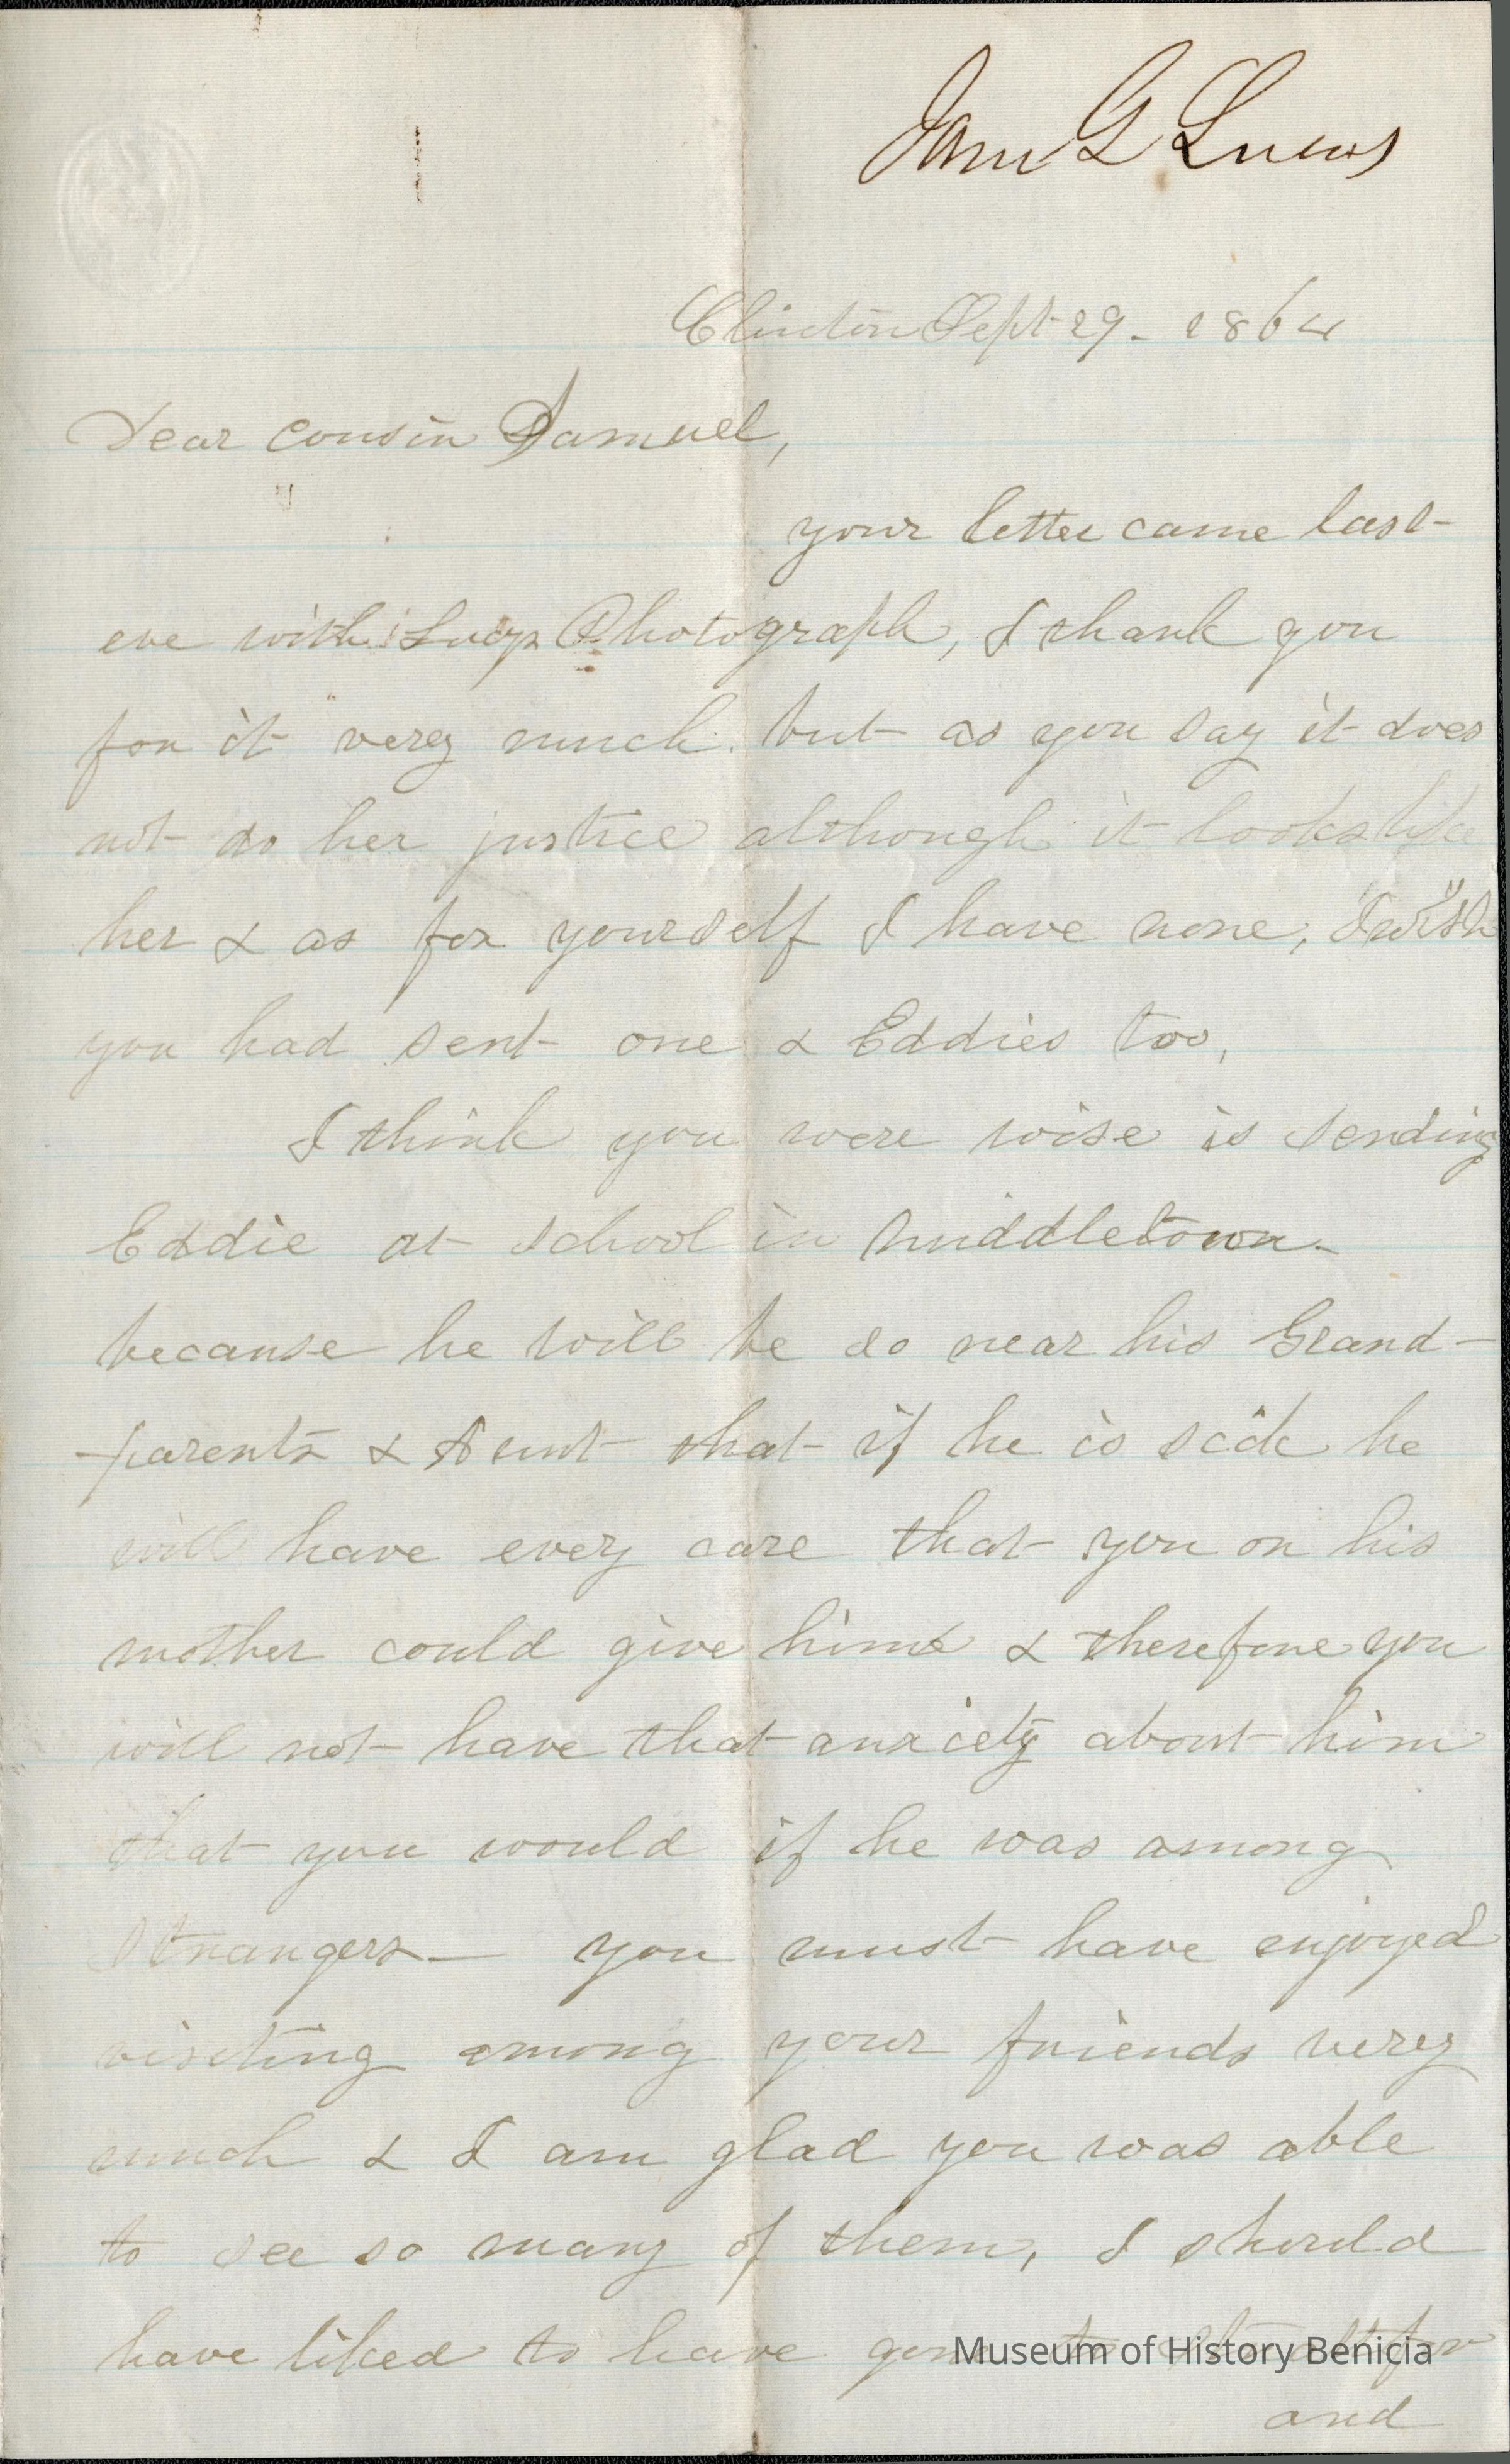 Sam G Lucas
Clinton Sept 29 - 1864
Dear cousin Samuel,
your letter came last
eve with Lucys Photograph, I thank you
for it very much. but as you say it does
not do her justice although it looks like
her & as for yourself I have none, I wish
you had sent one & Eddies too,
I think you were wise is sending
Eddie at school in Middletown -
because he will be so near his Grand-
-parents & Aunt that if he is sick he
will have every care that you or his
mother could give him & therefore you
will not have that anxiety about him
that you would if he was among
strangers - you must have enjoyed
visiting among your friends very
much & I am glad you was able
to see so many of them, I should
have liked to have gone to
and
Museum of History Benicia